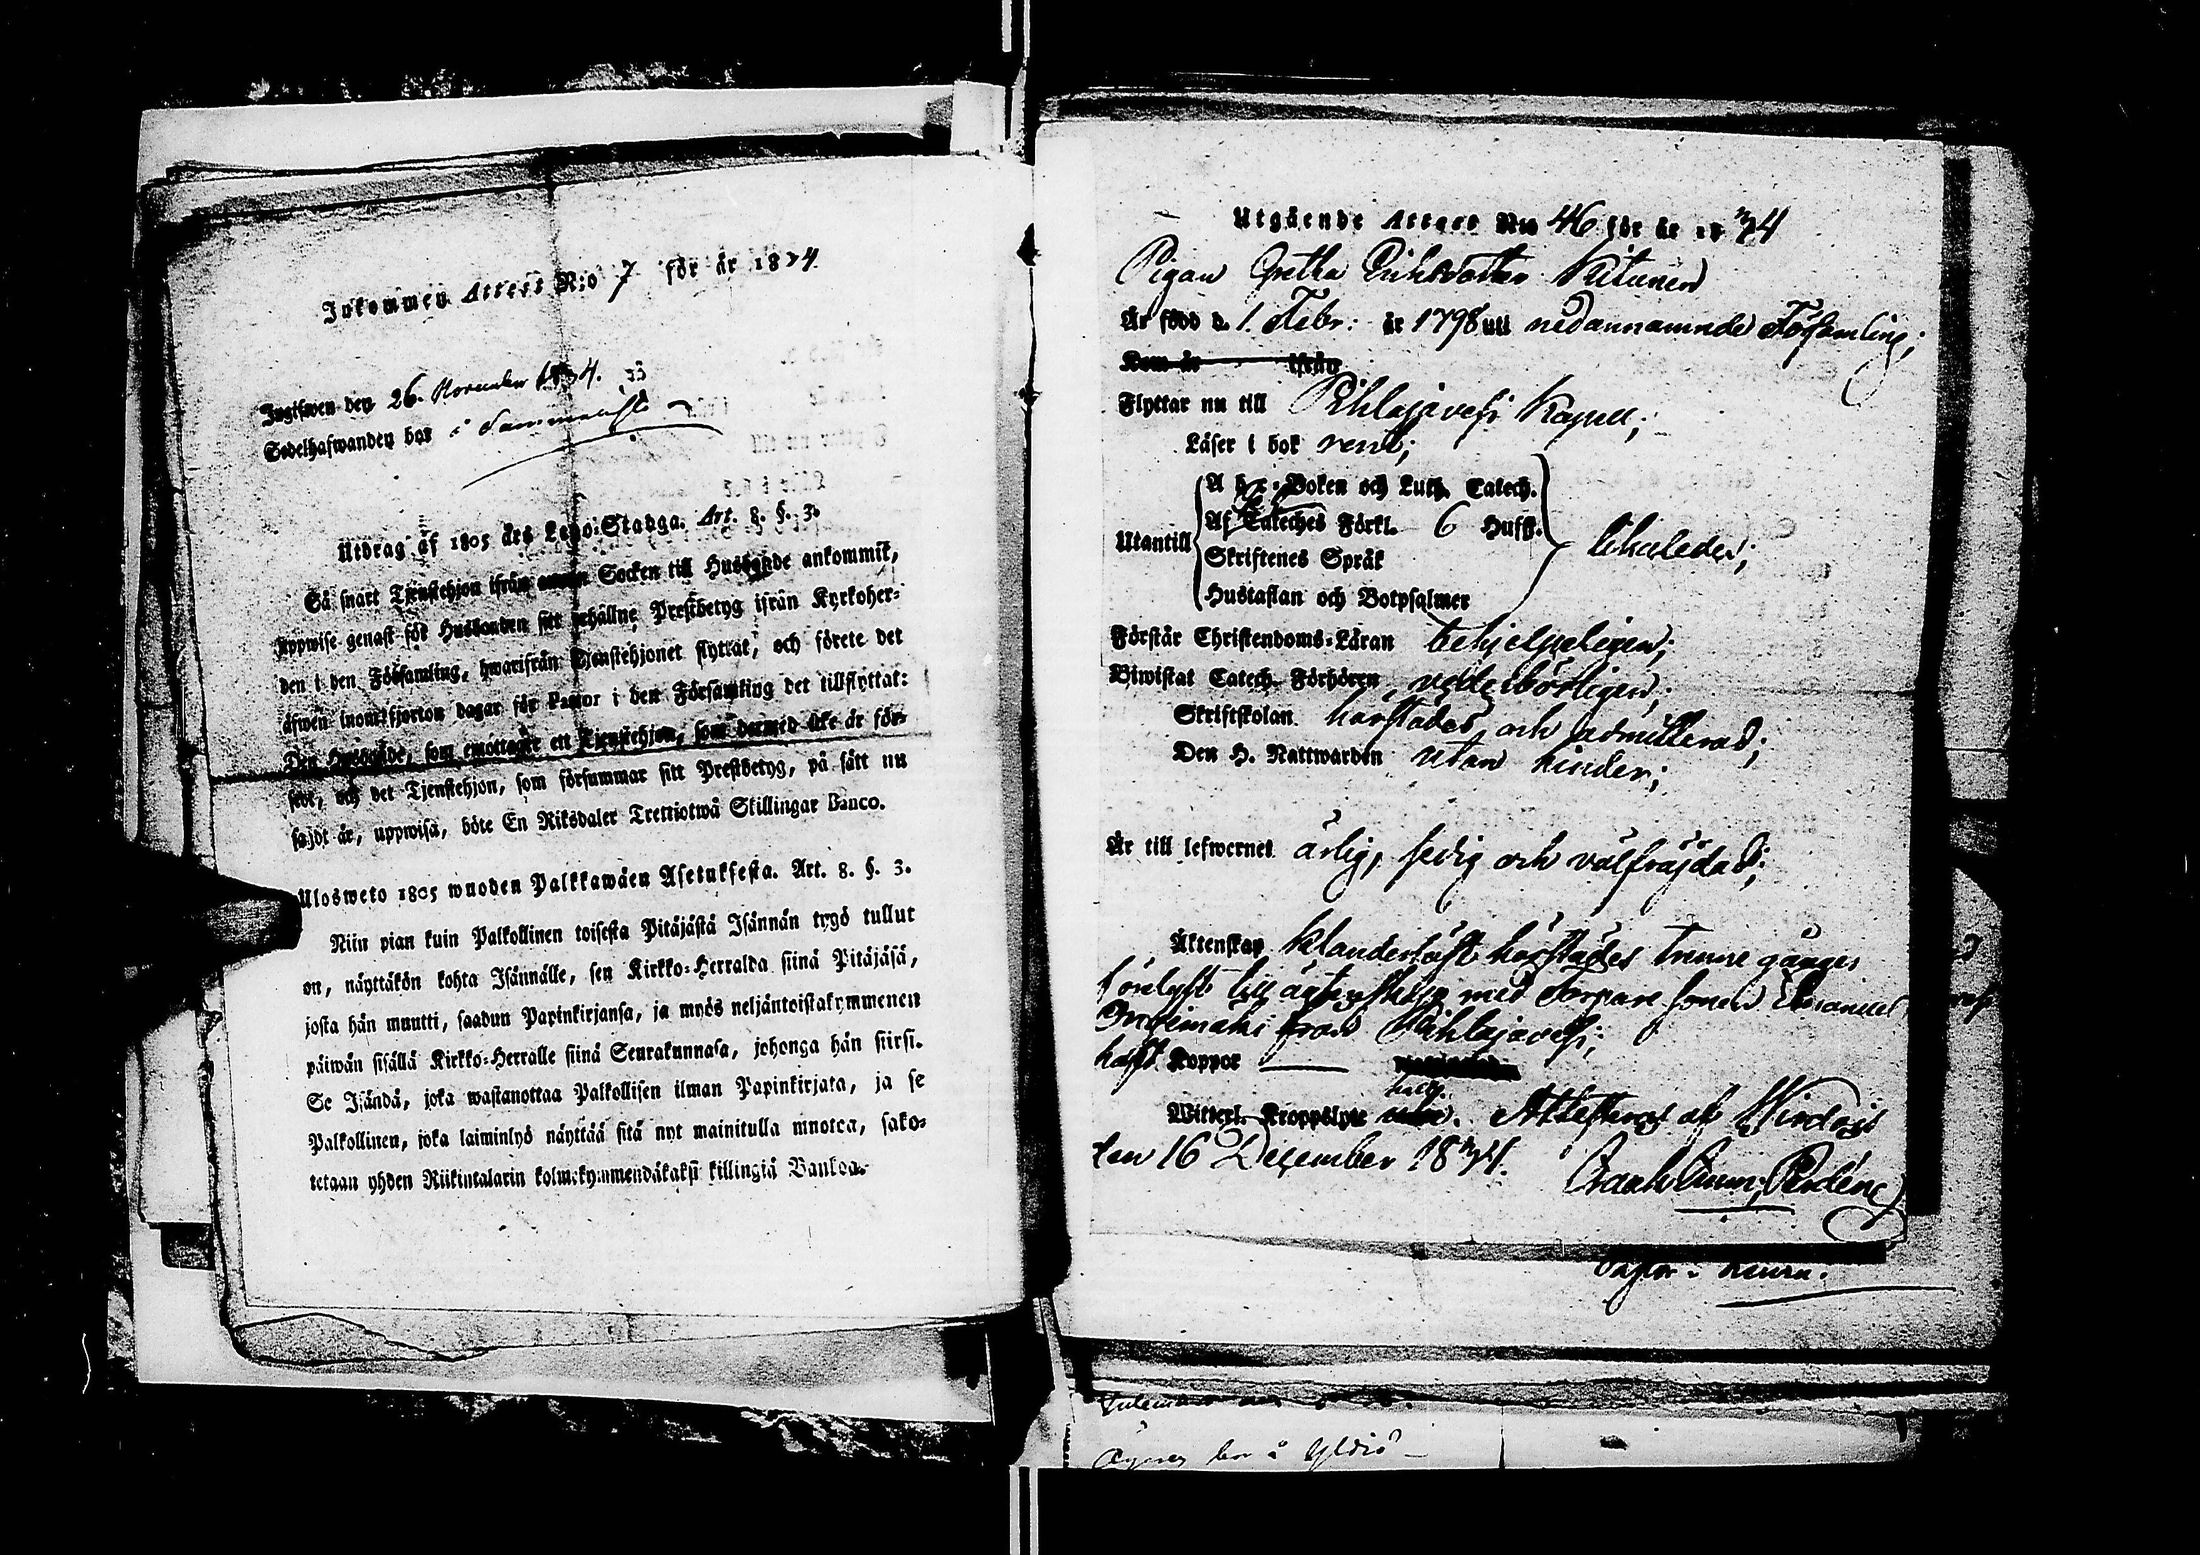 Inkommen Attest N:o 7 för år 1824
Ingifwen den 26. November 1824.
Sedelhafwanden bor i
Utdrag af 1805 års Lego-Stadga. Art. 8. §. 3.
Så snart Tjenstehjon ifrån annan Socken till Husbonde ankommit,
uppwise genast för Husbonden sitt erhållne Prestbetyg ifrån Kyrkoher-
den i den Församling, hwarifrån Tjenstehjonet flyttat, och förete det
äfwen inom fjorton dagar för Pastor i den Församling det tillflyttat:
Den Husbonde, som emottager ett Tjenstehjon, som dermed icke är för-
sedt, och det Tjenstehjon, som försummar sitt Prestbetyg, på sätt nu
sagdt är, uppwisa, böte En Riksdaler Trettiotwå Skillingar Banco.
Ulosweto 1805 wuoden Palkkawäen Asetuksesta. Art. 8. §. 3.
Niin pian kuin Palkollinen toisesta Pitäjästä Isännän tygö tullut
on, näyttäkön kohta Isännälle, sen Kirkko-Herralda siinä Pitäjäsä,
josta hän muutti, saadun Papinkirjansa, ja myös neljäntoistakymmenen
päiwän sisällä Kirkko-Herralle siinä Seurakunnasa, johonga hän siirsi.
Se Isändä, joka wastanottaa Palkollisen ilman Papinkirjata, ja se
Palkollinen, joka laiminlyö näyttää sitä nyt mainitulla muotoa, sako-
tetaan yhden Riikintalarin kolmekymmendäkaksi killingiä Bankoa.
Utgående Attest N:o 46 för år 1824
Pigan Gretha Eriksdotter Kitunen
Är född d. 1. Febr: år 1798 uti nedannamnde Församling;
Kom år ifrån
Flyttar nu till Pihlajavesi Kapell;
Läser i bok rent;
A b c-Boken och Luth. Catech.
Af Cateches Förkl. 6 Hufst.
Utantill
Skriftenes Språk
Hustaflan och Botpsalmer
Förstår Christendoms-Läran behjelpeligen;
Biwistat Catech. Förhören vederbörligen;
Skriftskolan härstädes och admitterad;
Den H. Nattwarden utan hinder;
Är till lefwernet ärlig, sedig och välfräjdad;
Äktenskap klanderlöst härstädes trenne gånger
lyst till äktenskap med Torpare sonen Emanuel
från Pihlajavesi;
haft Koppor
Witterl. Kroppslyte. Attesteras af Wirdois
den 16 December 1824.
Pastor i Keuru.